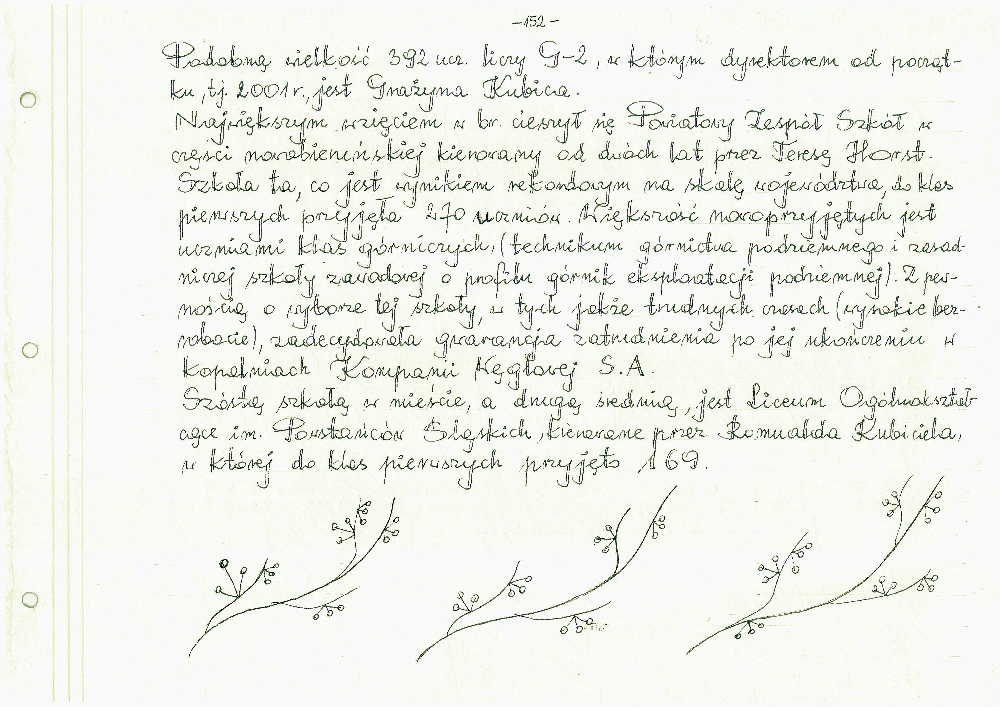 -152-
Podobną wielkość 392 ucz. liczy G-2, w którym dyrektorem od począt-
ku, tj. 2001r., jest Grażyna Kubica.
Największym wzięciem w br. cieszył się Powiatowy Zespół Szkół w
części nowobieruńskiej kierowany od dwóch lat przez Teresę Horst.
Szkoła ta, co jest wynikiem rekordowym na skalę województwa, do klas
pierwszych przyjęła 270 uczniów. Większość nowoprzyjętych jest
uczniami klas górniczych, (technikum górnictwa podziemnego i zasad-
niczej szkoły zawodowej o profilu górnik eksploatacji podziemnej). Z pew-
nością o wyborze tej szkoły, w tych jakże trudnych czasach (wysokie bez-
robocie), zadecydowała gwarancja zatrudnienia po jej ukończeniu w
Kopalniach Kompanii Węglowej S.A.
Szóstą szkołą w mieście, a drugą średnią, jest Liceum Ogólnokształ-
cące im. Powstańców Śląskich, kierowane przez Romualda Kubiciela,
w której do klas pierwszych przyjęto 169.